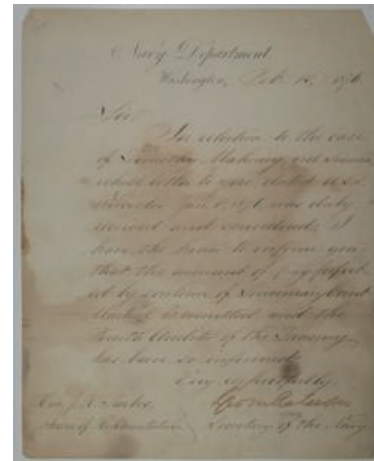 Navy Department.
Washington, Feb 12, 1876
Sir,
In relation to the case
of Timothy Mahoney, 2nd
whose letter to you, dated at
Jan 5, 1876 was duly
received and considered, I
have the honor to inform you
that the amount of pay forfeit-
ed by sentence of Summary Court
Martial is remitted and the
Fourth Auditor of the Treasury
has been so informed.
Very respectfully,
Hon. J. 
Geo M Robeson
House of Representatives
Secretary of the Navy